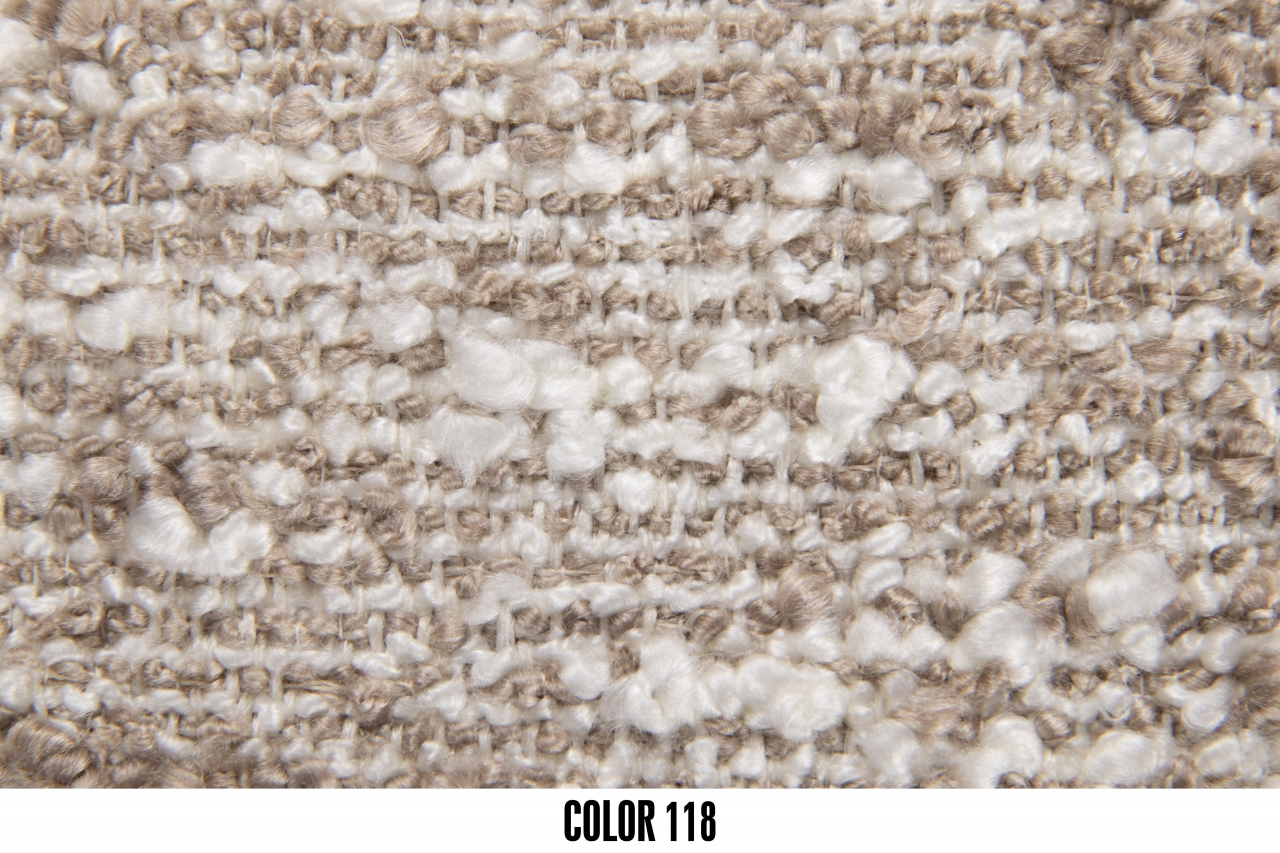 COLOR 118